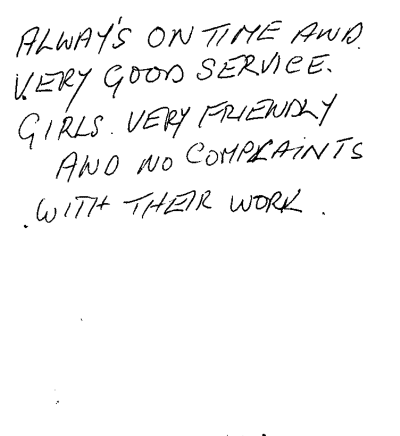 ALWAY'S ON TIME AND.
VERY GOOD SERVICE.
GIRLS. VERY FRIENDLY
AND NO COMPLAINTS
. WITH THEIR WORK .